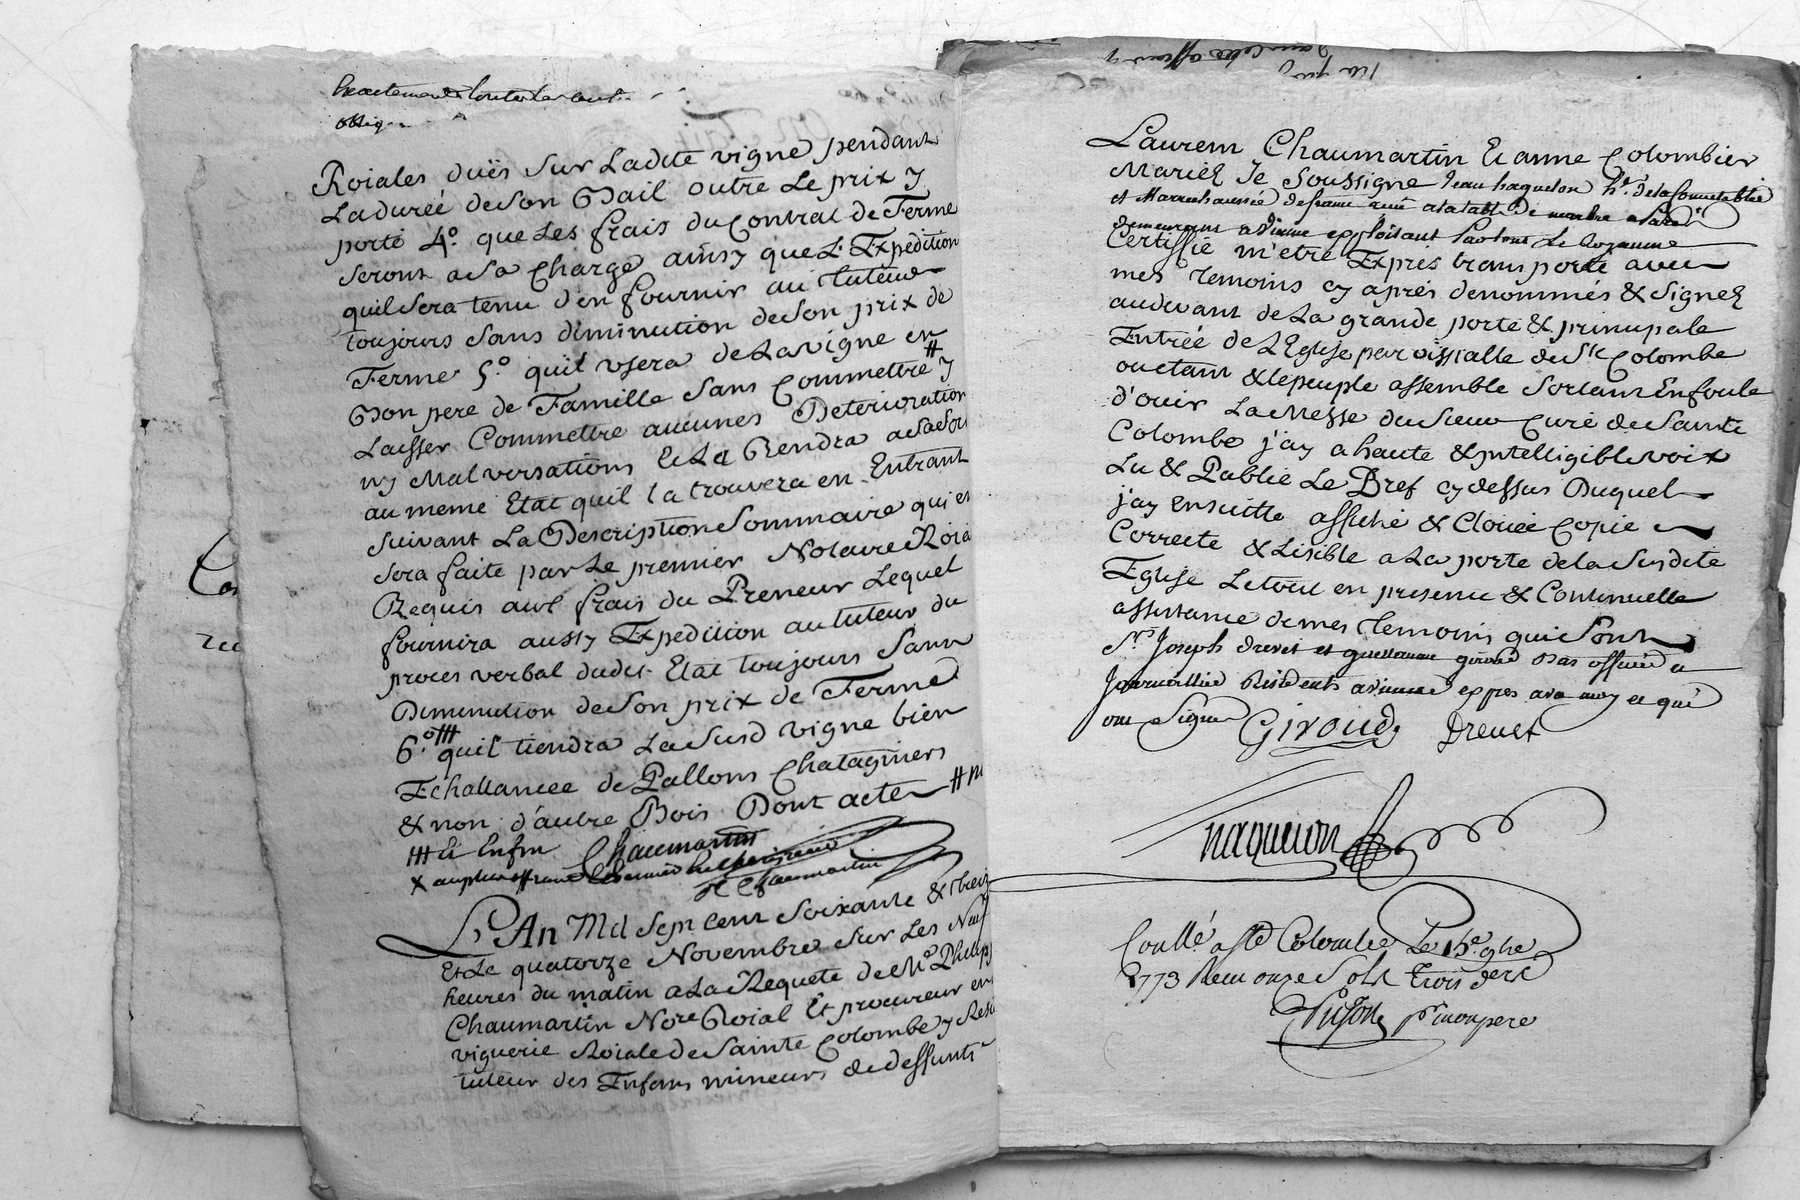 Exactement
oblig
Roiales duës sur Ladite vigne pendant
La durée de son Bail outre Le prix y
porté 4.° que Les frais du Contrat de Ferme
seront a sa Charge ainsy que L'Expedition
quil sera tenu d'en fournir au tuteur
toujours sans diminution de son prix de
Ferme 5.° quil usera de La vigne en
Bon pere de Famille sans Commettre # y
Laisser Commettre aucunes Deterioration
ny Malversations & La Rendra a sa Sor
au meme Etat quil la trouvera en Entrant
suivant La Description Sommaire qui en
sera faite par Le premier Notaire Roia
Requis aux frais du Preneur Lequel
fournira aussy Expedition au tuteur du
proces verbal dudit Etat toujours sans
Diminution de son prix de Ferme
6.° ### quil tiendra La Susd vigne bien
Echallancee de Pallons Chatagniers
& non d'autre Bois Dont acte #
### & Enfin Chaumartin
X au plus offrant
Chaumartin
L'An Mil Sept Cent Soixante & treiz
Et Le quatorze Novembre sur Les Neuf
heures du matin a La Requete de Me Philip
Chaumartin Nore Roial Et procureur en
viguerie Roiale de Sainte Colombe y Resd
tuteur des Enfans mineurs de deffunts
Laurent Chaumartin Et anne Colombier
Mariez Je Soussigné Jean naqueton hr. de la Connetablie
et Marechaussée de france à la table de marbre a Paris
demeurant a Vienne exploitant par tout Le Royaume
Certiffie m'etre Expres transporté avec
mes temoins cy apres denommés & signez
audevant de La grande porte & principale
Entrée de L'Eglise parroissialle de Ste Colombe
ou etant & le peuple assemblé sortant En foule
d'ouir La Messe du Sieur Curé de Sainte
Colombe j'ay a haute & intelligible voix
Lu & Publié Le Bref cy dessus Duquel
j'ay Ensuitte affiché & Clouée Copie
Correcte & Lisible a La porte de la Susdite
Eglise Le tout en presence & Continuelle
assistance de mes temoins qui sont
Srs Joseph Drevet et giroud
Journallier Residents a vienne expres avec moy et qui
ont Signé Giroud Drevet
naqueton
Conllé a Ste Colombe Le
1773 Reçu onze Sols trois ders